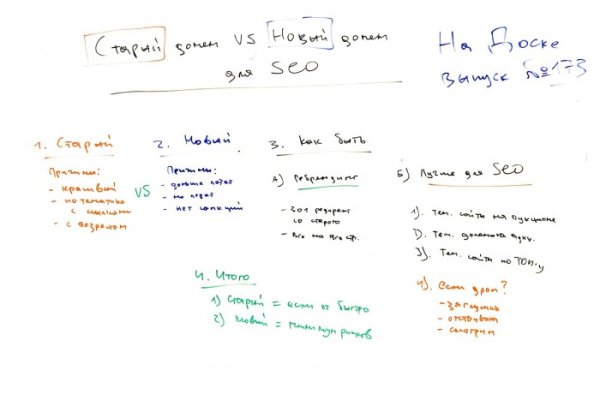 Старый домен VS Новый домен
для SEO
На Доске
выпуск №173
1. Старый
Причины:
- красивый
- по тематике
с ссылками
- с возрастом
VS
2. Новый
Причины:
- дольше
- нет санкций
3. Как быть
А) Ребрендинг
- 301 редирект
со старого
- Все на все стр.
Б) Лучше для SEO
1). Тем. сайты на аукционе
2). Тем. домена
3). Тем. сайты по ТОП-у
4). если дроп?
- загрузка
- отстойник
- смотрим
4. Итого
1) Старый = если оч быстро
2) Новый = минимум рисков